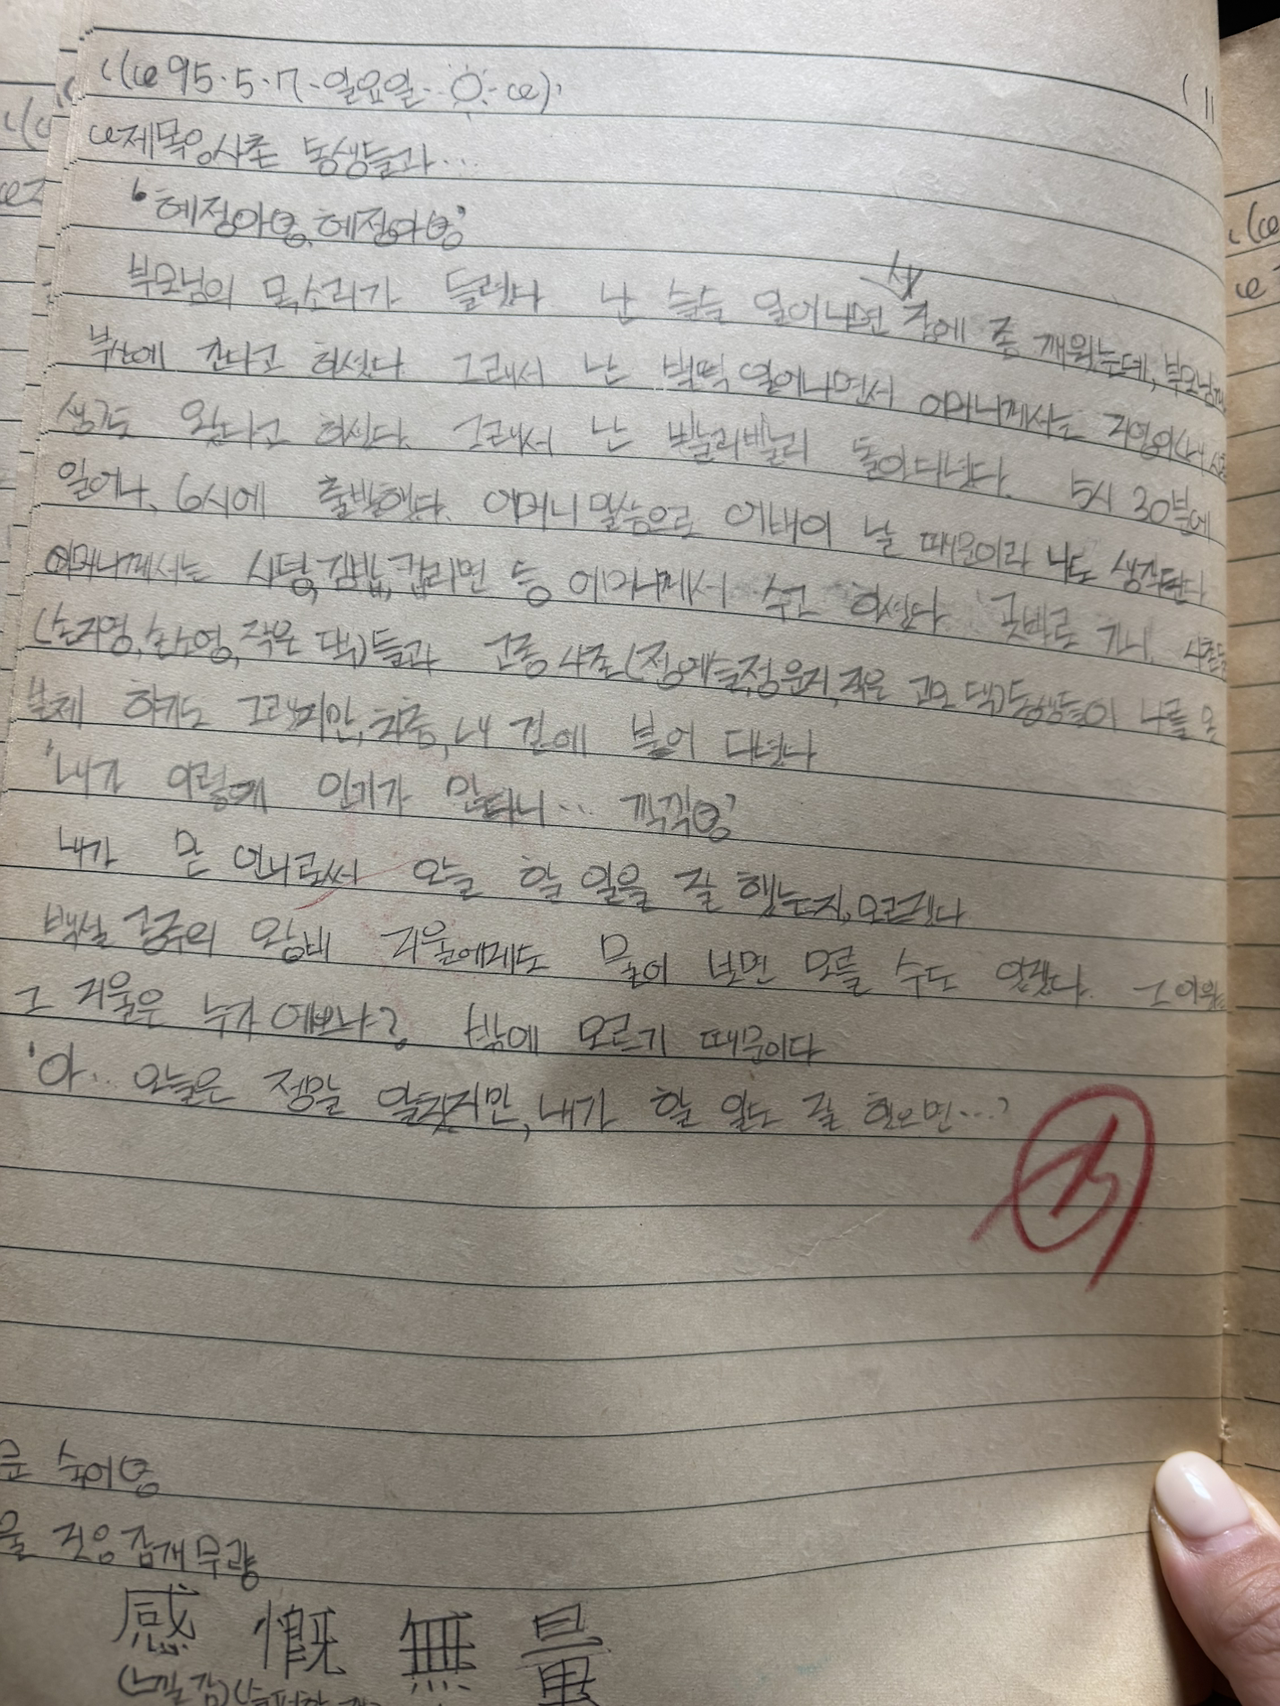 95.5.7.일요일
제목 사촌 동생들과...
혜정아 혜정아
부모님의 목소리가 들렸다 난 슬슬 일어나면 새 좀 깨웠는데, 부모님께
부산에 간다고 하셨다 그래서 난 벌떡 일어나면서 어머니께서는 지영이(내
생각도 왔다고 하신다. 그래서 난 빨리빨리 돌아다녔다. 5시 30분에
일어나, 6시에 출발했다. 어머니 말씀으로 어버이 날 때문이라 나도 생각한다
어머니께서는 김밥, 컵라면 등 어머니께서 수고 하셨다 곧바로 가니, 사촌들
(손지영, 손소영, 작은 댁)들과 고종 사촌(정예슬, 정윤지, 작은 고모 댁)동생들이 나를
하기도 그렇지만, 하루종, 내 곁에 붙어 다녔다
'내가 이렇게 인기가 많다니... 깍깍'
내가 맏 언니로써 오늘 할 일을 잘 했는지, 모르겠다
백설 공주의 왕비 거울에게도 물어 보면 모를 수도 있겠다. 그 이유는
그 거울은 누가 예쁘나? 밖에 모르기 때문이다
'아.. 오늘은 정말 알찼지만, 내가 할 일도 잘 했으면...'
숙어
감개무량
感 慨 無 量
(느낄 감)